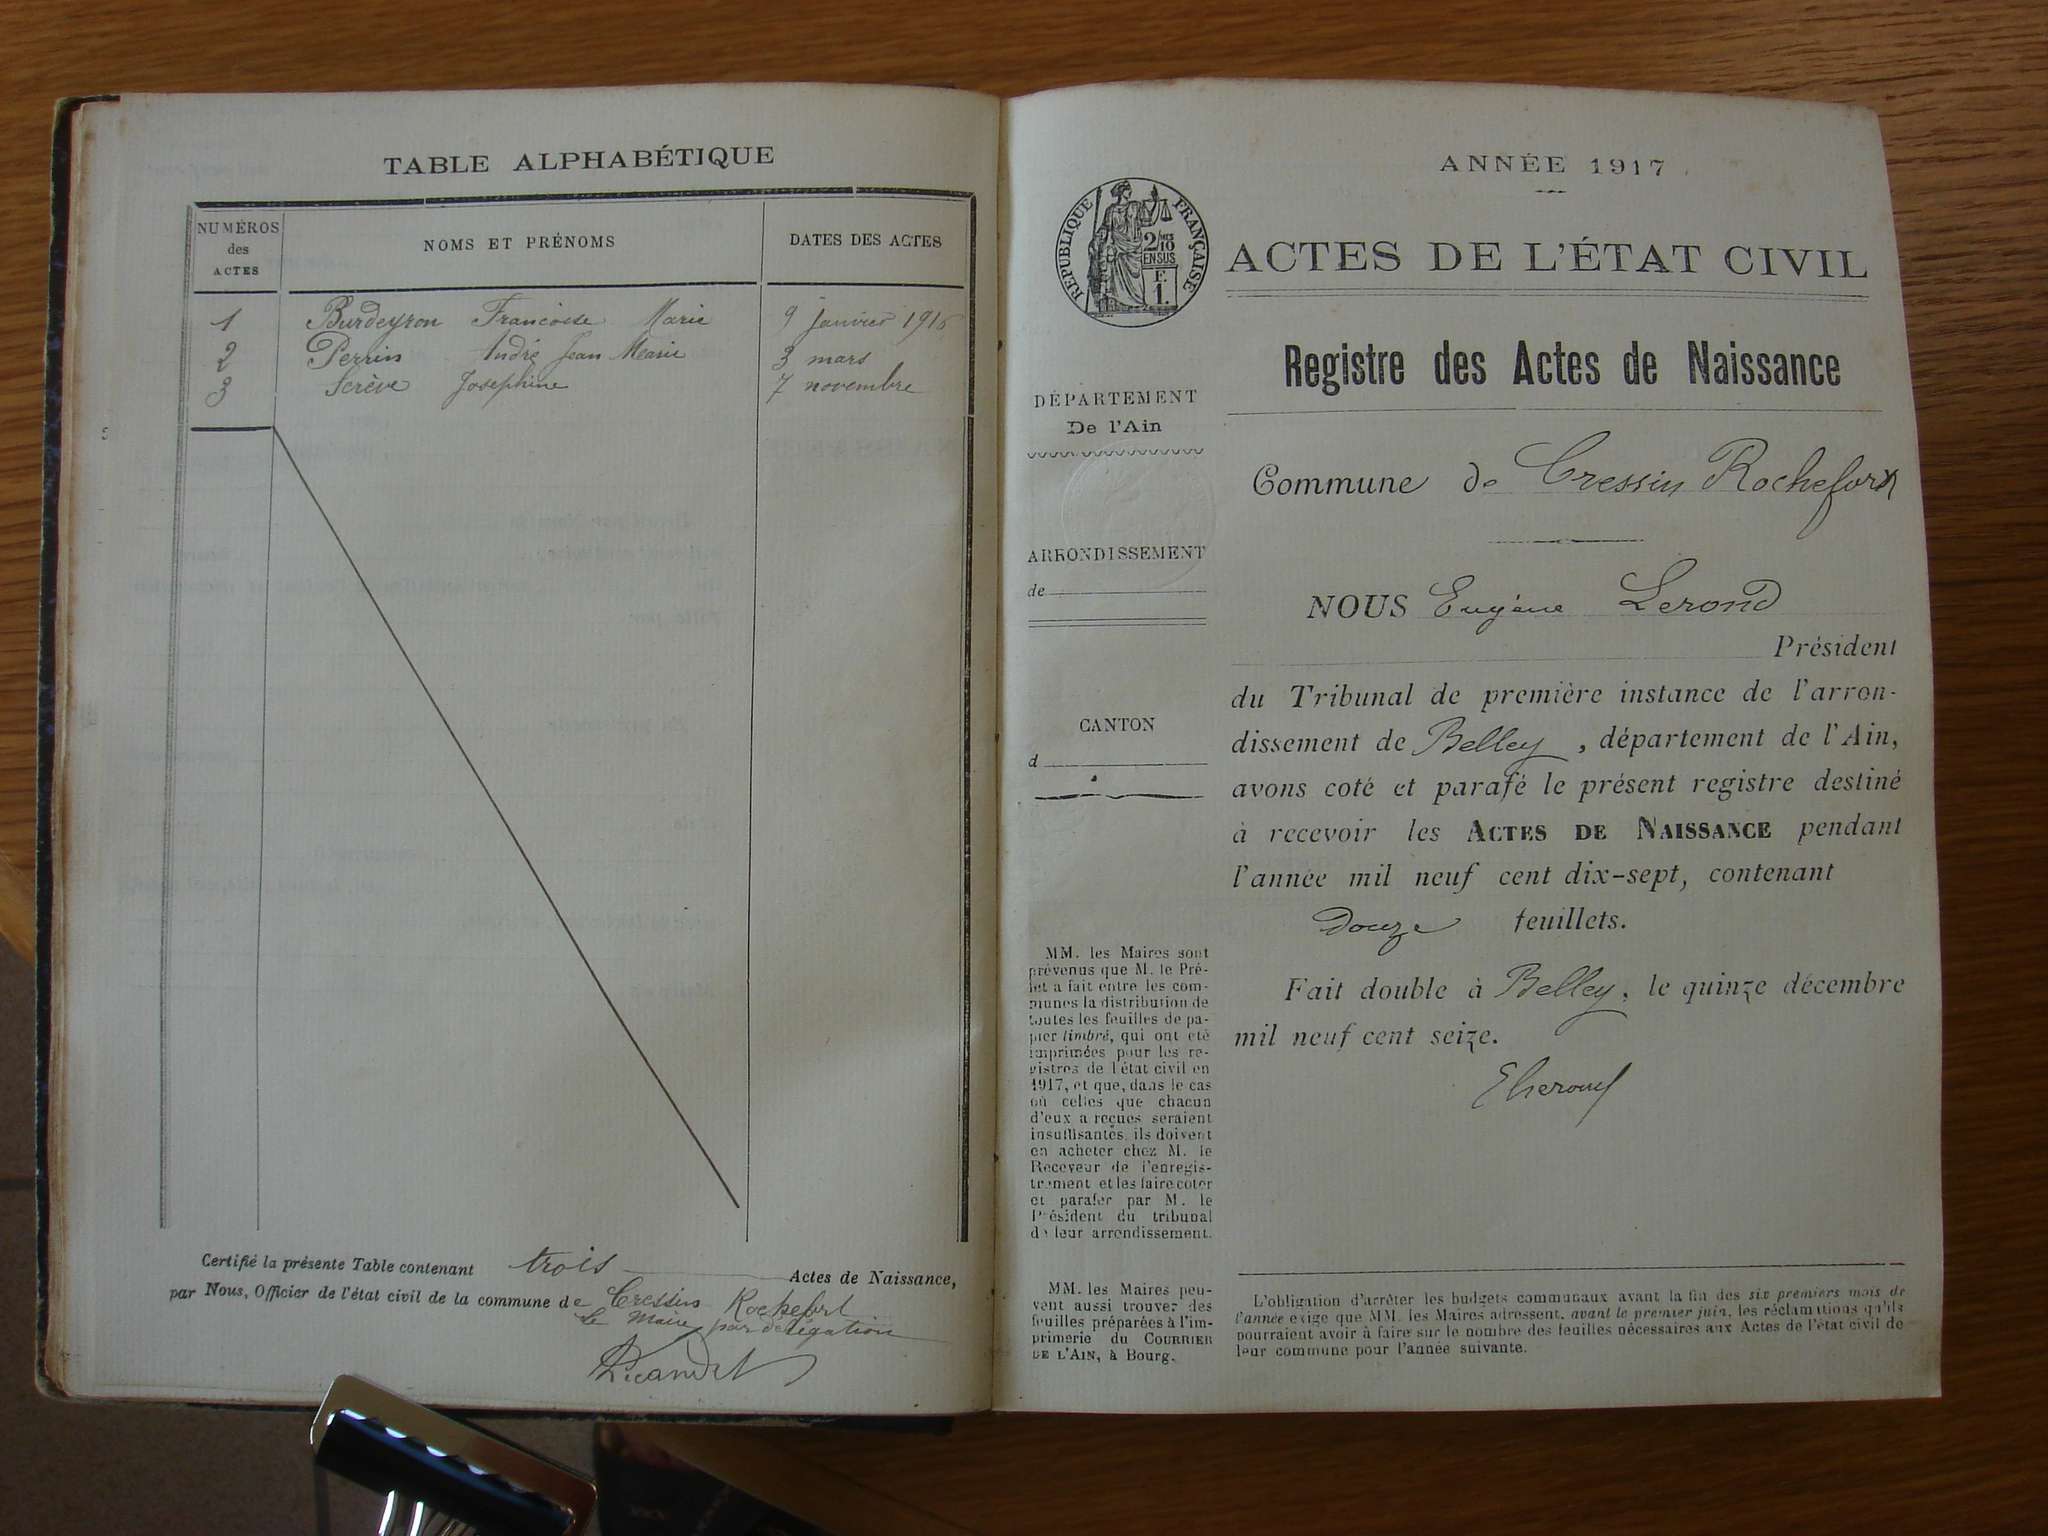 TABLE ALPHABÉTIQUE
NUMÉROS
des
ACTES
NOMS ET PRÉNOMS
DATES DES ACTES
1 Burdeyron Francoise Marie 9 janvier 1916
2 Perrin André Jean Marie 3 mars
3 Serève Josephine 7 novembre
Certifié la présente Table contenant trois Actes de Naissance,
par Nous, Officier de l'état civil de la commune de Cressin Rochefort
Le Maire par délégation
ANNÉE 1917
RÉPUBLIQUE FRANÇAISE
2/10
EN SUS
F.
1.
ACTES DE L'ÉTAT CIVIL
Registre des Actes de Naissance
DÉPARTEMENT
De l'Ain
ARRONDISSEMENT
de
CANTON
d
MM. les Maires sont
prévenus que M. le Pré-
fet a fait entre les com-
munes la distribution de
toutes les feuilles de pa-
pier timbré, qui ont été
imprimées pour les re-
gistres de l'état civil en
1917, et que, dans le cas
où celles que chacun
d'eux a reçues seraient
insuffisantes, ils doivent
en acheter chez M. le
Receveur de l'enregis-
trement et les faire coter
et parafer par M. le
Président du tribunal
de leur arrondissement.
MM. les Maires peu-
vent aussi trouver des
feuilles préparées à l'im-
primerie du COURRIER
DE L'AIN, à Bourg.
Commune de Cressin Rochefort
NOUS Eugène Lerond
Président
du Tribunal de première instance de l'arron-
dissement de Belley, département de l'Ain,
avons coté et parafé le présent registre destiné
à recevoir les ACTES DE NAISSANCE pendant
l'année mil neuf cent dix-sept, contenant
Douze feuillets.
Fait double à Belley, le quinze décembre
mil neuf cent seize.
L'obligation d'arrêter les budgets communaux avant la fin des six premiers mois de
l'année exige que MM. les Maires adressent, avant le premier juin, les réclamations qu'ils
pourraient avoir à faire sur le nombre des feuilles nécessaires aux Actes de l'état civil de
leur commune pour l'année suivante.